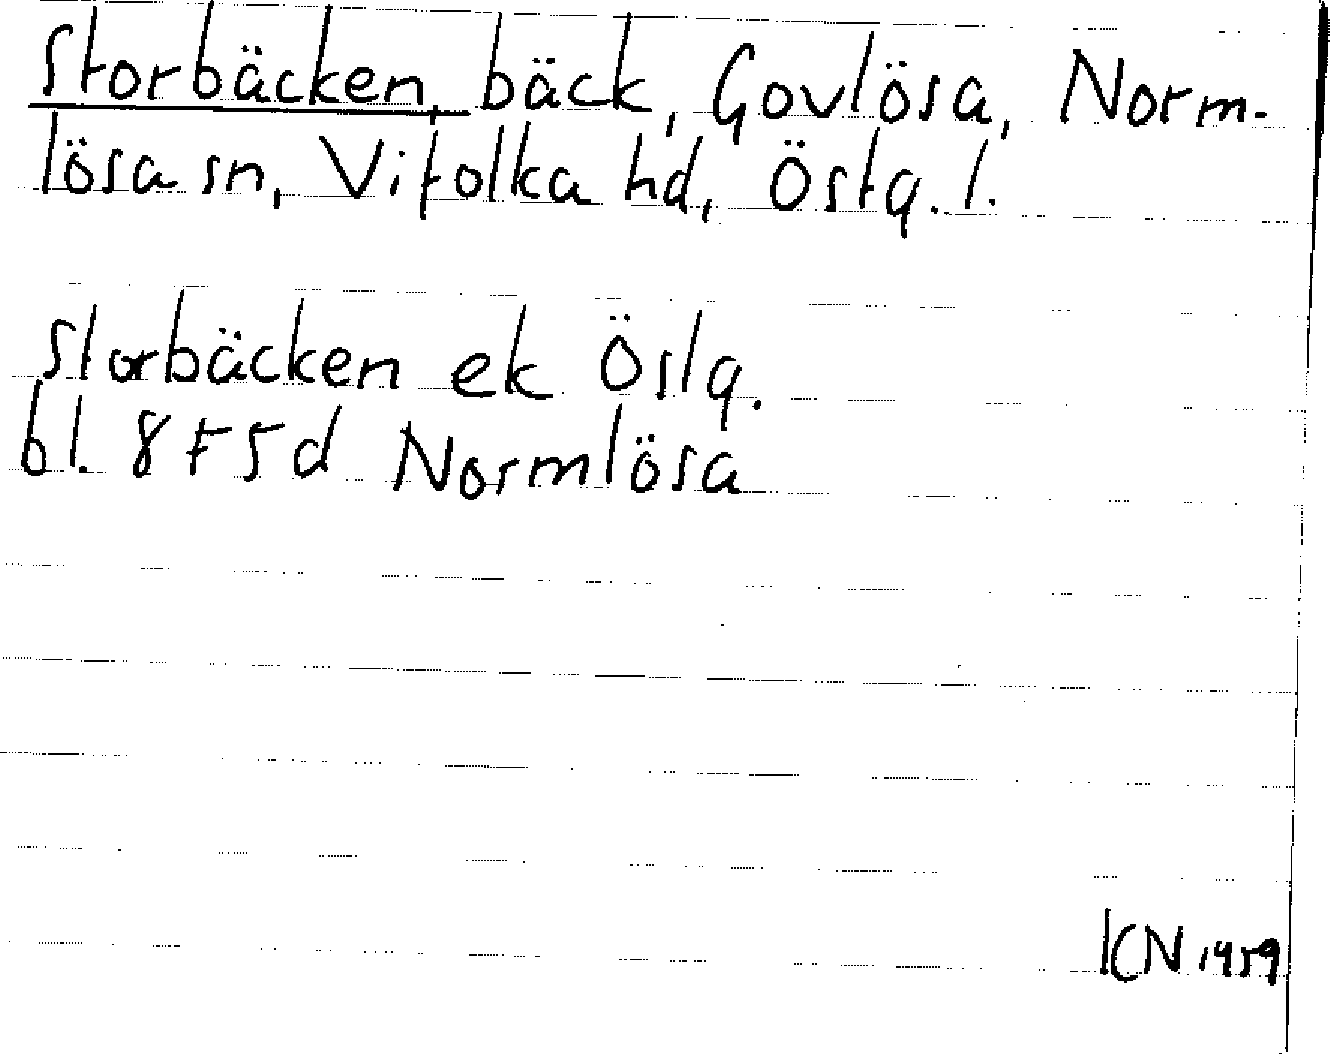 Storbäcken, bäck, Govlösa, Norm-
lösa sn, Vifolka hd, Östg. l.
Storbäcken ek Östg.
bl. 8F5d Normlösa
KN 1959